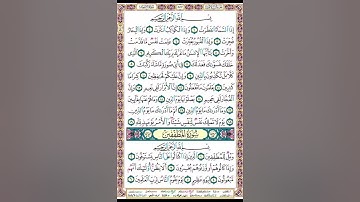 بِسْمِ اللَّهِ الرَّحْمَٰنِ الرَّحِيمِ
إِذَا السَّمَاءُ انفَطَرَتْ وَإِذَا الْكَوَاكِبُ انتَثَرَتْ وَإِذَا الْبِحَارُ
فُجِّرَتْ وَإِذَا الْقُبُورُ بُعْثِرَتْ عَلِمَتْ نَفْسٌ مَّا قَدَّمَتْ
وَأَخَّرَتْ يَا أَيُّهَا الْإِنسَانُ مَا غَرَّكَ بِرَبِّكَ الْكَرِيمِ الَّذِي
خَلَقَكَ فَسَوَّاكَ فَعَدَلَكَ فِي أَيِّ صُورَةٍ مَّا شَاءَ رَكَّبَكَ
كَلَّا بَلْ تُكَذِّبُونَ بِالدِّينِ وَإِنَّ عَلَيْكُمْ لَحَافِظِينَ
كِرَامًا كَاتِبِينَ يَعْلَمُونَ مَا تَفْعَلُونَ إِنَّ الْأَبْرَارَ
لَفِي نَعِيمٍ وَإِنَّ الْفُجَّارَ لَفِي جَحِيمٍ يَصْلَوْنَهَا يَوْمَ الدِّينِ
وَمَا هُمْ عَنْهَا بِغَائِبِينَ وَمَا أَدْرَاكَ مَا يَوْمُ الدِّينِ ثُمَّ مَا أَدْرَاكَ مَا
يَوْمُ الدِّينِ يَوْمَ لَا تَمْلِكُ نَفْسٌ لِّنَفْسٍ شَيْئًا وَالْأَمْرُ يَوْمَئِذٍ لِّلَّهِ
سُورَةُ الْمُطَفِّفِينَ
بِسْمِ اللَّهِ الرَّحْمَٰنِ الرَّحِيمِ
وَيْلٌ لِّلْمُطَفِّفِينَ الَّذِينَ إِذَا اكْتَالُوا عَلَى النَّاسِ يَسْتَوْفُونَ
وَإِذَا كَالُوهُمْ أَو وَّزَنُوهُمْ يُخْسِرُونَ أَلَا يَظُنُّ أُولَٰئِكَ أَنَّهُم
مَّبْعُوثُونَ لِيَوْمٍ عَظِيمٍ يَوْمَ يَقُومُ النَّاسُ لِرَبِّ الْعَالَمِينَ